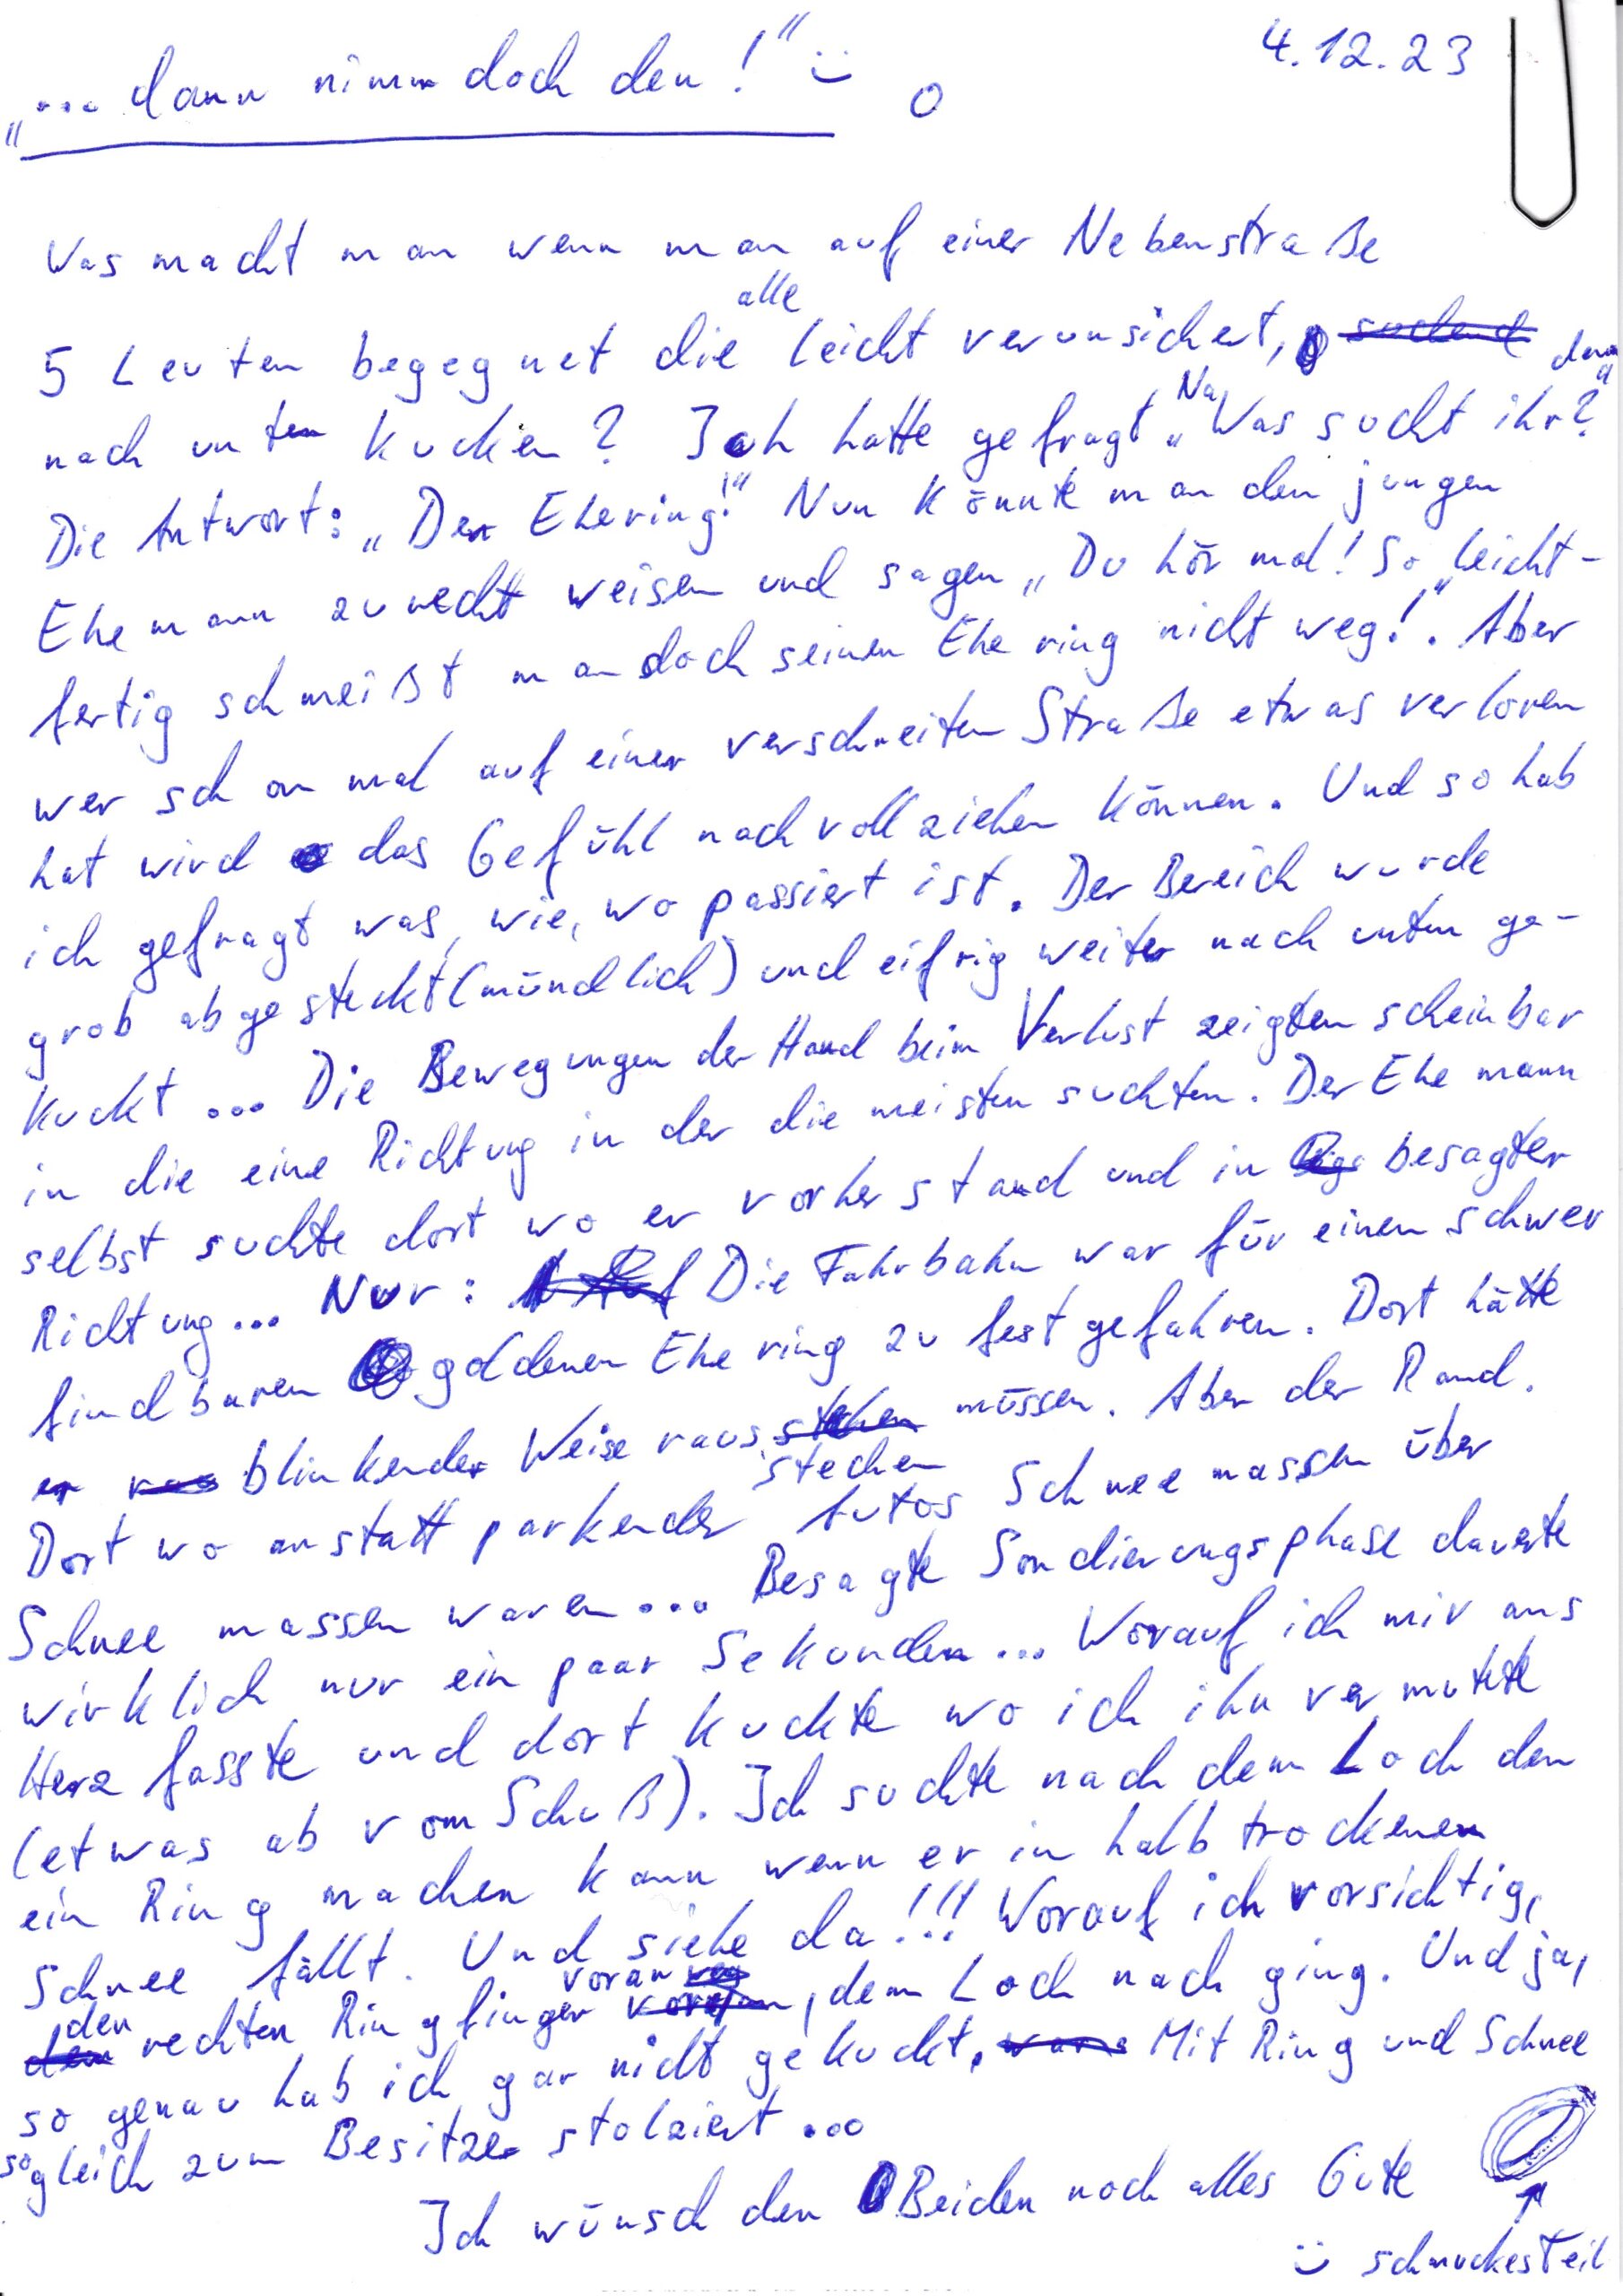 4.12.23
„... dann nimm doch den!" :)
Was macht man wenn man auf einer Nebenstraße
5 Leuten begegnet die alle leicht verunsichert,
nach unten kucken? Ich hatte gefragt „Na Was sucht ihr?"
Die Antwort: „Den Ehering!" Nun könnte man den jungen
Ehemann zurecht weisen und sagen „Du hör mal! So leicht-
fertig schmeißt man doch seinen Ehering nicht weg!". Aber
wer schon mal auf einer verschneiten Straße etwas verloren
hat wird das Gefühl nachvollziehen können. Und so hab
ich gefragt was, wie, wo passiert ist. Der Bereich wurde
grob abgesteckt (mündlich) und eifrig weiter nach unten ge-
kuckt ... Die Bewegungen der Hand beim Verlust zeigten scheinbar
in die eine Richtung in der die meisten suchten. Der Ehemann
selbst suchte dort wo er vorher stand und in besagter
Richtung... Nur: Die Fahrbahn war für einen schwer
findbaren goldenen Ehering zu fest gefahren. Dort hätte
er blinkender Weise rausstechen müssen. Aber der Rand.
Dort wo anstatt parkender Autos Schneemassen über
Schneemassen waren... Besagte Sondierungsphase dauerte
wirklich nur ein paar Sekunden... Worauf ich mir ans
Herz fasste und dort kuckte wo ich ihn vermutete
(etwas ab vom Schuß). Ich suchte nach dem Loch den
ein Ring machen kann wenn er in halbtrockenen
Schnee fällt. Und siehe da!!! Worauf ich vorsichtig,
den rechten Ringfinger voran, dem Loch nach ging. Und ja,
so genau hab ich gar nicht gekuckt. Mit Ring und Schnee
sogleich zum Besitzer stolziert ...
Ich wünsch den Beiden noch alles Gute
:) schmuckes Teil